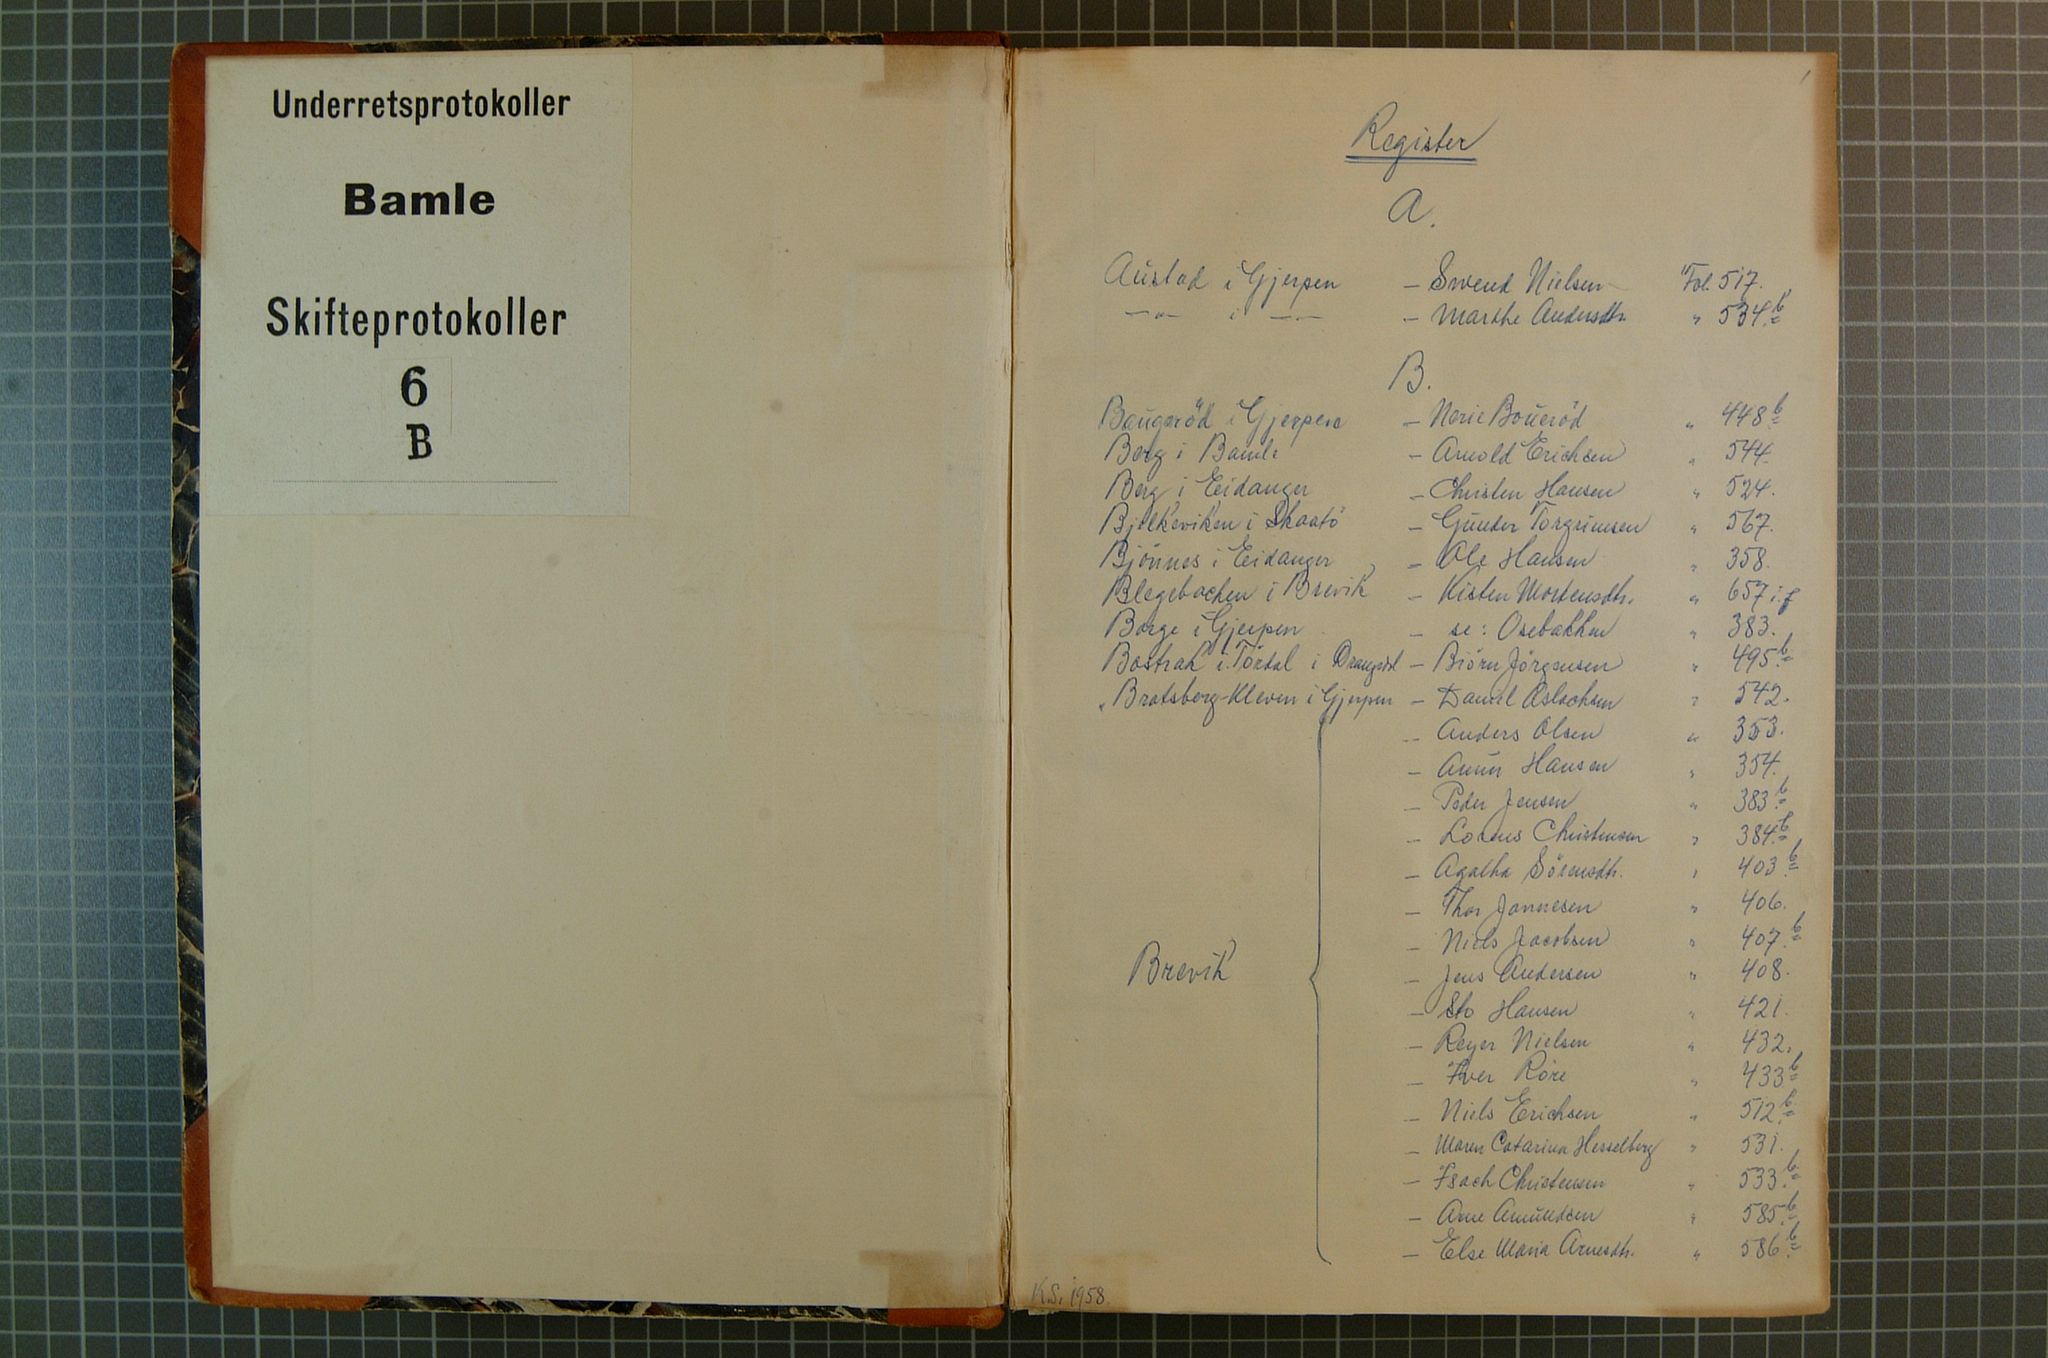 Underretsprotokoller
Bamle
Skifteprotokoller
6
B
1
Register
A.
Austad i Gjerpen — Swend Nielsen Fol. 517.
—"— i —"— — Marthe Andersdtr. " 534.b
B.
Baugeröd i Gjerpen — Nerie Boueröd " 448.b
Berg i Bamle — Arnold Erichsen " 544.
Berg i Eidanger — Christen Hansen " 524.
Bjelkeviken i Skaatö — Gunder Torgrimsen " 567.
Bjönnes i Eidanger — Ole Hansen " 358.
Blegebachen i Brevik — Kisten Mortensdtr. " 657 i.f
Borge i Gjerpen — se: Osebakken " 383.
Bostrak i Tördal i Drangedal — Biörn Jörgensen " 495.b
Bratsberg-Kleven i Gjerpen — Daniel Aslachsen " 542.
— Anders Olsen " 353.
— Amun Hansen " 354.
— Peder Jensen " 383.b
— Lorens Christensen " 384.b
— Agatha Sörensdtr. " 403.b
— Thor Jonnesen " 406.
— Niels Jacobsen " 407.b
Brevik — Jens Andersen " 408.
— Sto Hansen " 421.
— Reyer Nielsen " 432.
— Iver Röre " 433.b
— Niels Erichsen " 512.b
— Maren Catarina Hesselberg " 531.
— Isach Christensen " 533.b
— Arne Amundsen " 585.b
— Else Maria Arnesdtr. " 586.b
K.S. 1958.